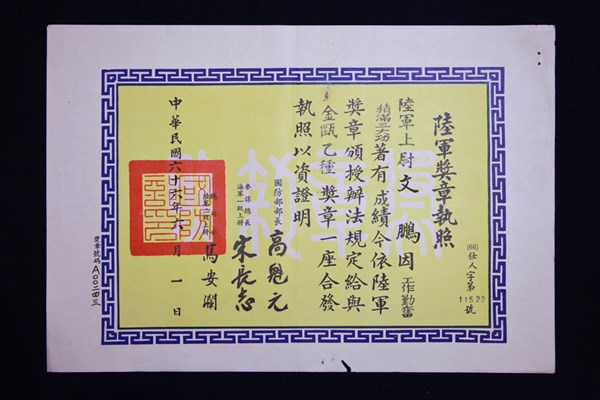 陸軍獎章執照
(66)仕人字第11523號
陸軍上尉文鵬因工作勤奮
積滿三大功著有成績今依陸軍
獎章頒授辦法規定給與
金甌乙種獎章一座合發
執照以資證明
國防部部長高魁元
參謀總長
海軍一級上將宋長志
總司令
陸軍二級上將馬安瀾
中華民國六十六年六月一日
獎章號碼A００二四三